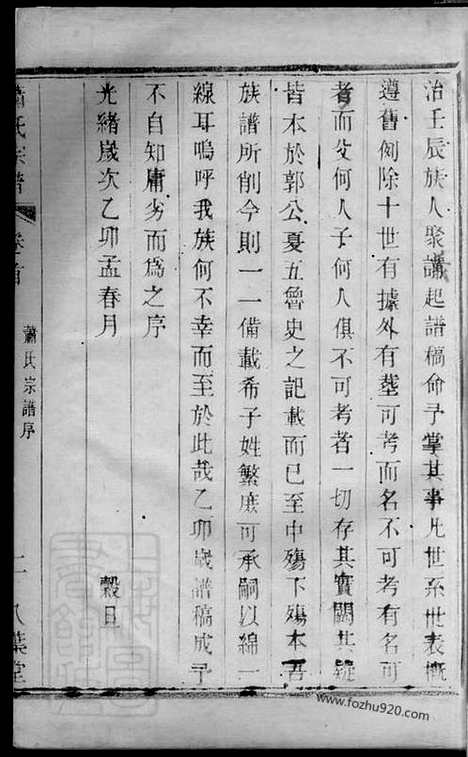 治壬辰族人聚議起譜稿命予掌其事凡世系世表概
遵舊例除十世有據外有塋可考而名不可考有名可
者而父何人子何人俱不可考者一切存其實闕其疑
皆本於郭公夏五魯史之記載而已至中殤下殤本吾
族譜所削今則一一備載希子姓繁庶可承嗣以綿一
線耳嗚呼我族何不幸而至於此哉乙卯歲譜稿成予
不自知庸劣而為之序
光緒歲次乙卯孟春月 穀旦
蕭氏宗譜 卷首 蕭氏宗譜序 二 八葉堂
www.fozhu920.com